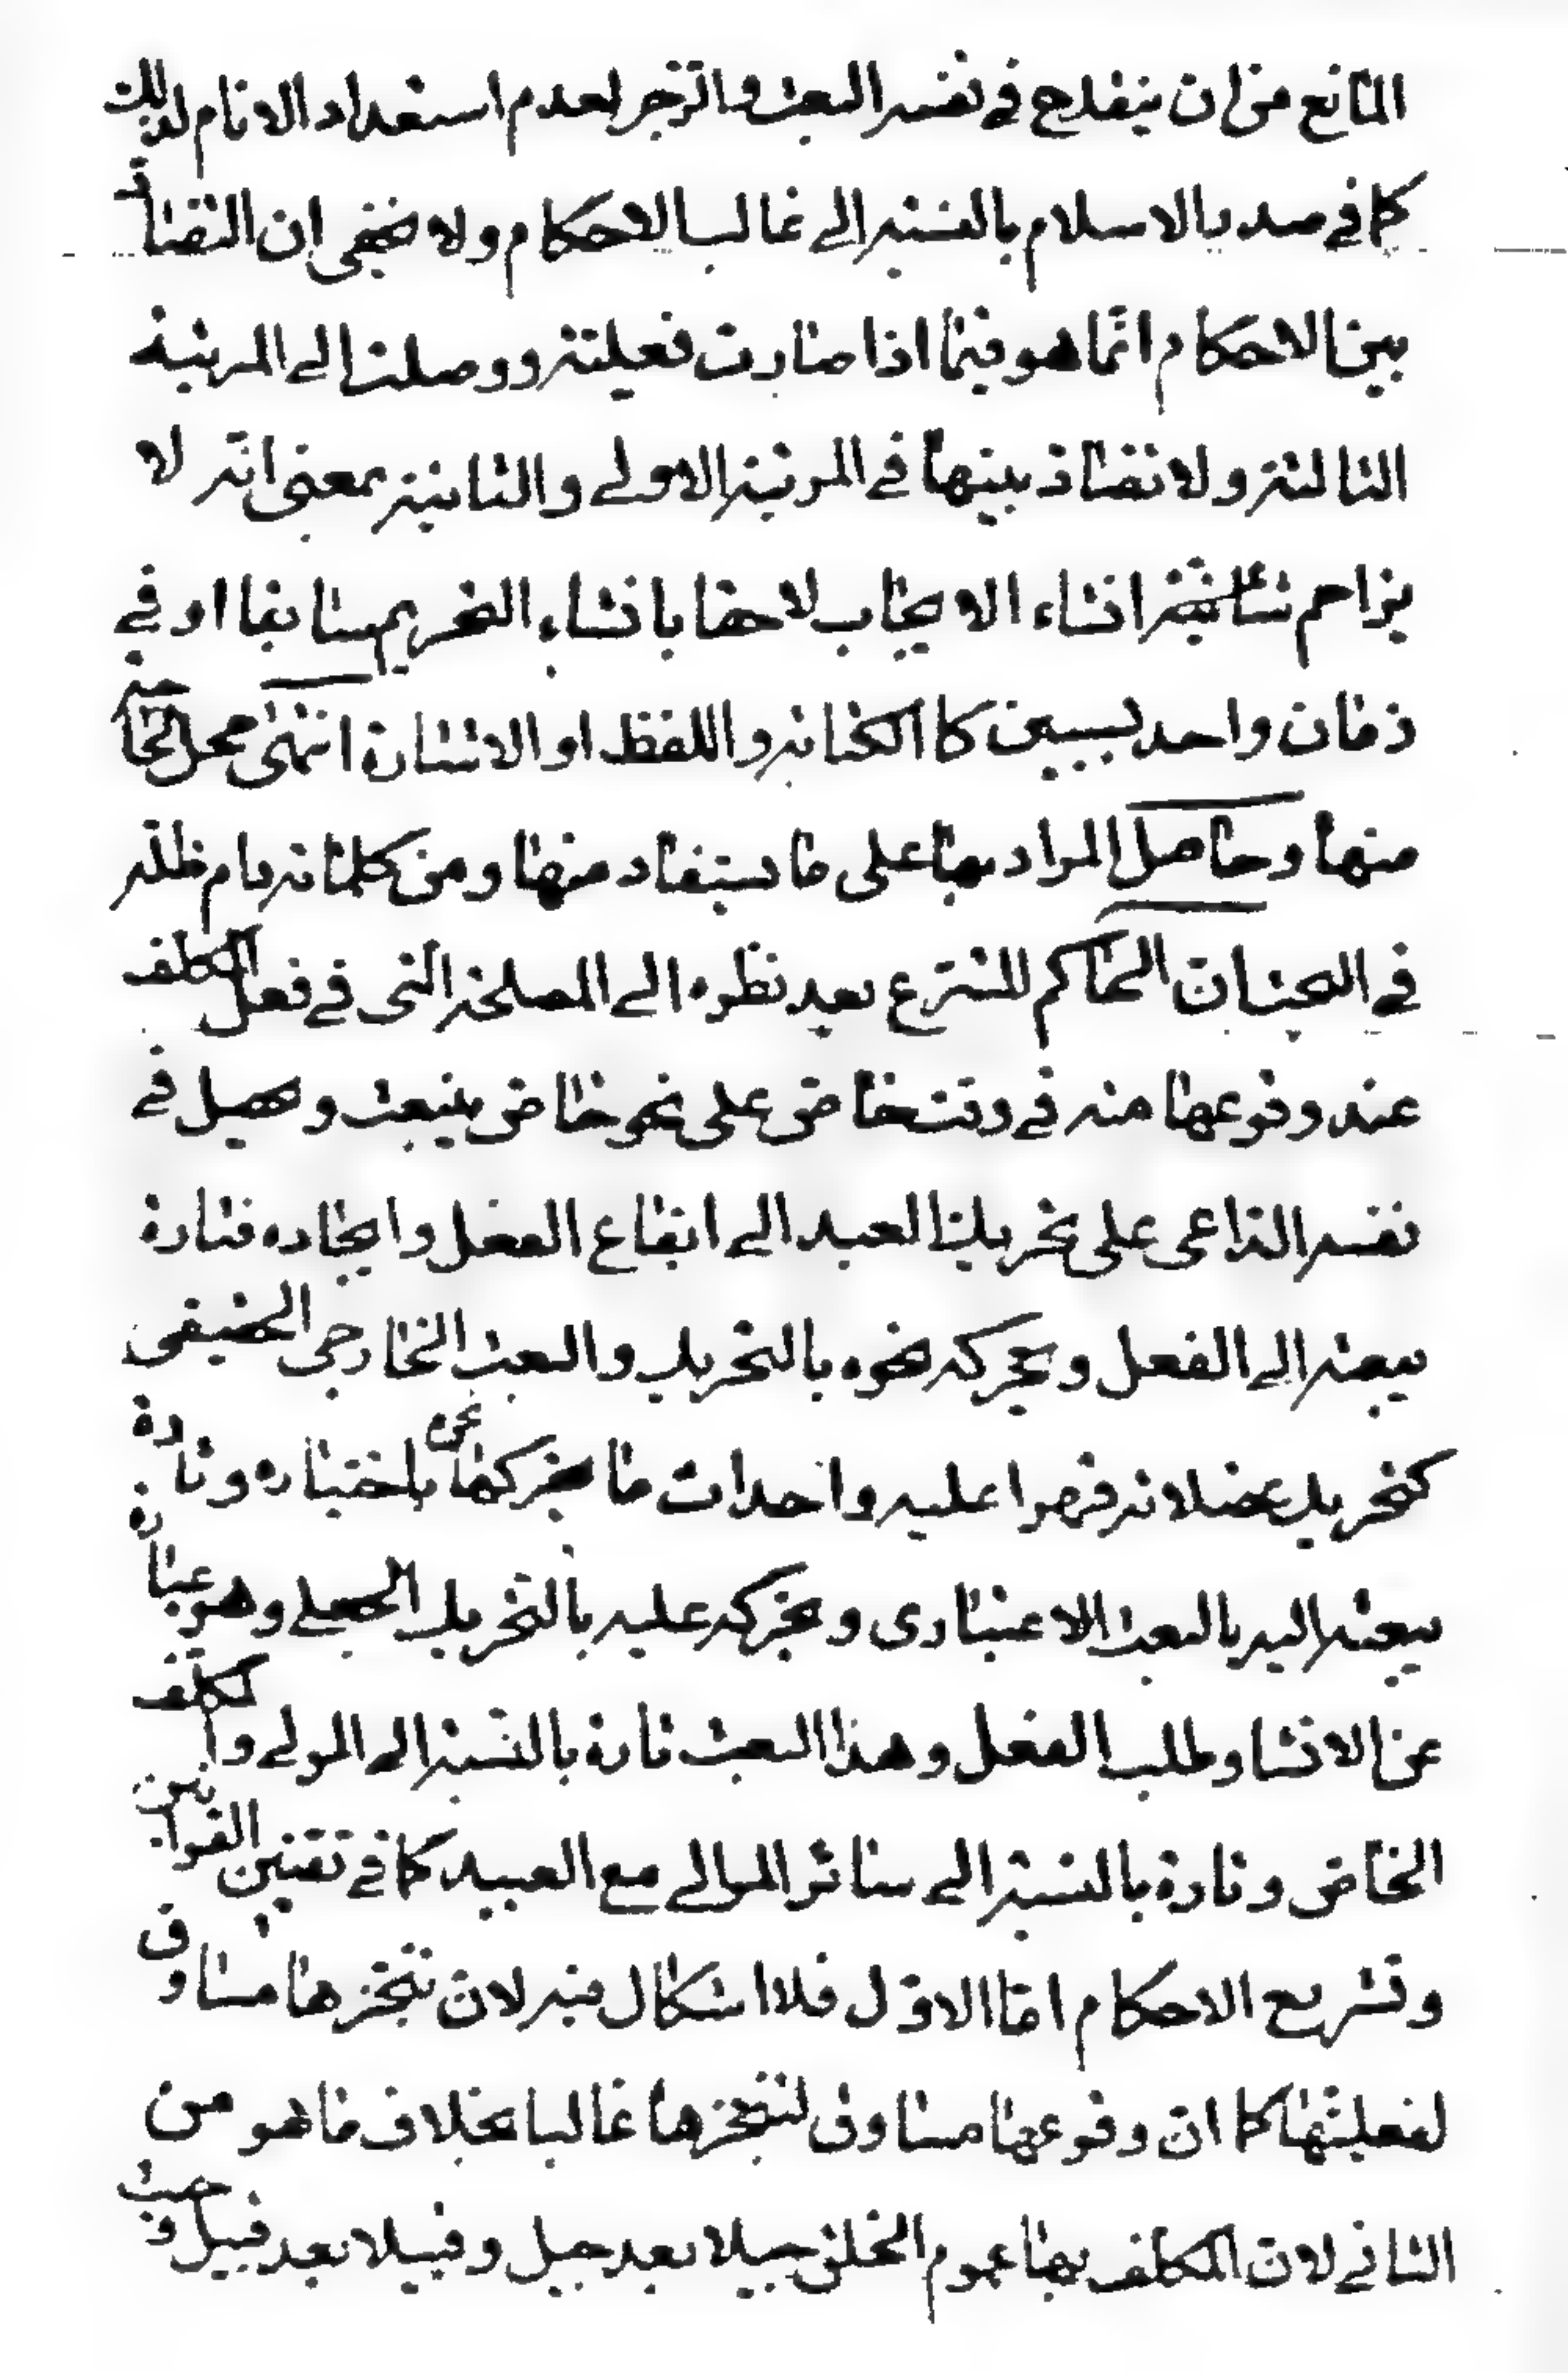 المانع من ان ينقدح في نفسه البعث والزجر لعدم استعداد الانام لذلك
كما في صدر الاسلام بالنسبة الى غالب الاحكام ولا يخفى ان التضاد
بين الاحكام انما هو فيما اذا صارت فعلية ووصلت الى المرتبة
الثالثة ولا تضاد بينها في المرتبة الاولى والثانية بمعنى انه لا
يزاحم انشاء الايجاب لاحقا بانشاء التحريم سابقا او في
زمان واحد بسببين كالكتابة واللفظ او الاشارة انتهى محل الحاجة
منها وحاصل المراد بها على ما يستفاد منها ومن كلماته دام ظله
في البحث ان الحاكم للشرع بعد نظره الى المصلحة التى في فعل المكلف
عند وقوعها منه في وقت خاص على نحو خاص ينبعث ويحصل في
نفسه الداعى على تحريك العبد الى ايقاع الفعل وايجاده فتارة
يبعثه الى الفعل ويحركه نحوه بالتحريك والبعث الخارجى الحقيقى
كتحريك عضلاته قهرا عليه واحداث ما يحركها نحوه باختياره وتارة
يبعثه اليه بالبعث الاعتبارى ويحركه عليه بالتحريك الجعلى وهو عبارة
عن الانشاء وطلب الفعل وهذا البعث تارة بالنسبة الى المولى والمكلف
الخاص وتارة بالنسبة الى سائر الموالى مع العبيد كما في تقنين القوانين
وتشريع الاحكام اما الاول فلا اشكال فيه لان تنجزها مساوق
لفعليتها كما ان وقوعها مساوق لتنجزها غالبا بخلاف ما هو من
الثانى لان المكلف بها عموم الخلق جيلا بعد جيل وقبيلا بعد قبيل وحيث